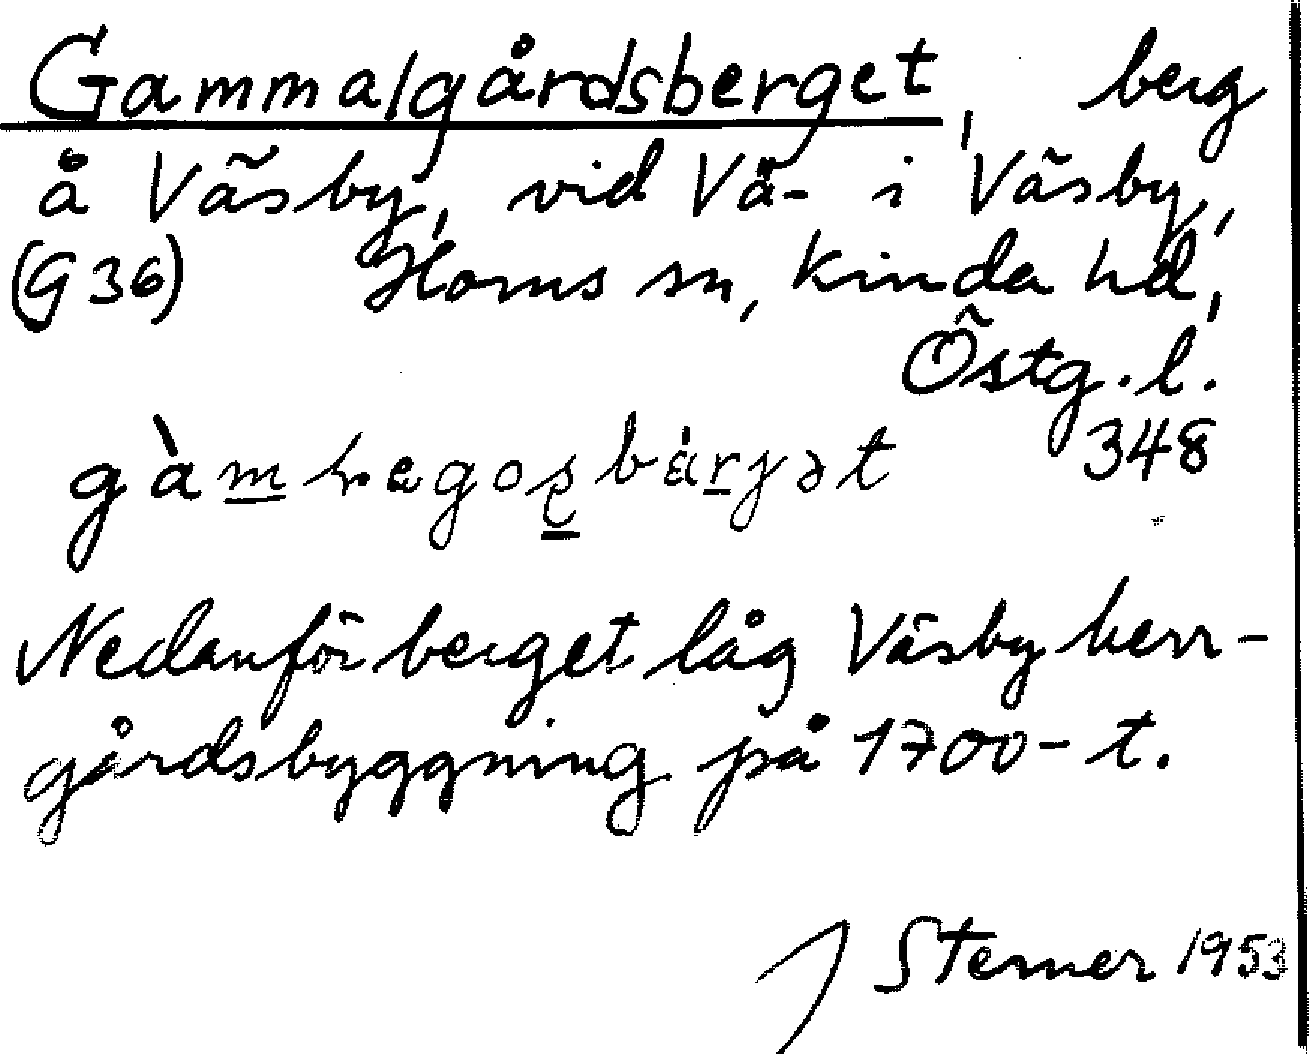 Gammalgårdsberget, berg
å Väsby, vid Vä- i Väsby,
(G 36) Horns sn, Kinda hd,
Östg.l.
348
Nedanför berget låg Väsby herr-
gårdsbyggning på 1700-t.
J Sterner 1953